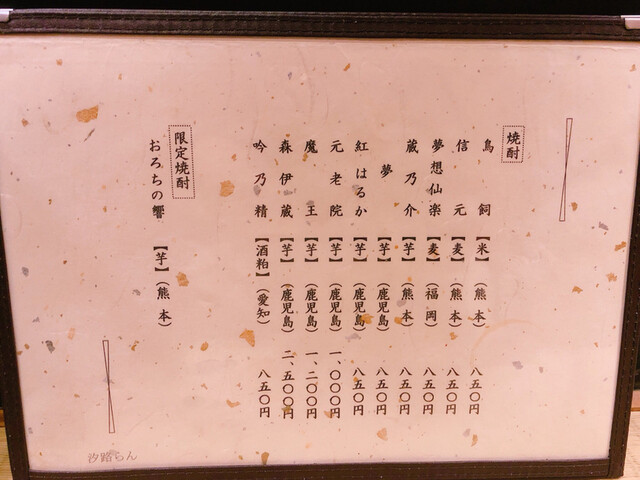 焼酎
鳥飼 【米】(熊本) 八五〇円
信元 【麦】(熊本) 八五〇円
夢想仙楽 【麦】(福岡) 八五〇円
蔵乃介 【芋】(熊本) 八五〇円
夢 【芋】(鹿児島) 八五〇円
紅はるか 【芋】(鹿児島) 八五〇円
元老院 【芋】(鹿児島) 一、〇〇〇円
魔王 【芋】(鹿児島) 一、二〇〇円
森伊蔵 【芋】(鹿児島) 二、五〇〇円
吟乃精 【酒粕】(愛知) 八五〇円
限定焼酎
おろちの響 【芋】(熊本)
汐路らん